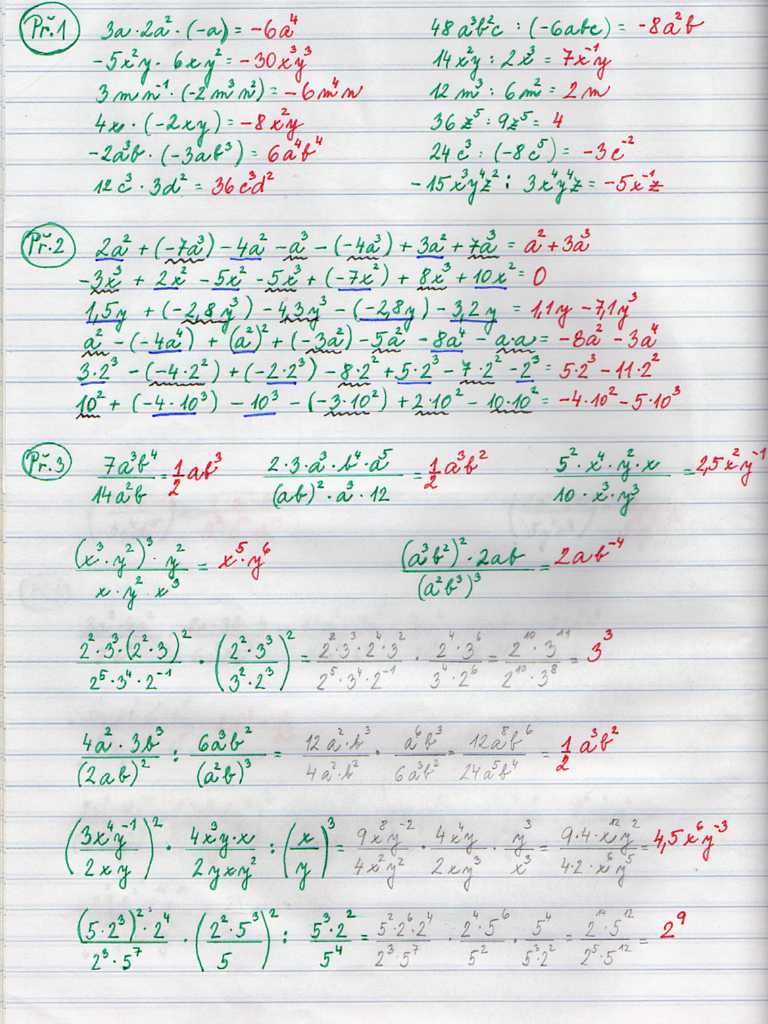 Př.1 3a·2a²·(-a) = -6a⁴ 48a³b²c : (-6abc) = -8a²b
-5x²y · 6xy² = -30x³y³ 14x²y : 2x³ = 7x⁻¹y
3mn⁻¹ · (-2m³n²) = -6m⁴n 12m³ : 6m² = 2m
4x · (-2xy) = -8x²y 36z⁵ : 9z⁵ = 4
-2a³b · (-3ab³) = 6a⁴b⁴ 24c³ : (-8c⁵) = -3c⁻²
12c³ · 3d² = 36c³d² -15x³y⁴z² : 3x⁴y⁴z = -5x⁻¹z
Př.2 2a² + (-7a³) - 4a² - a³ - (-4a³) + 3a² + 7a³ = a² + 3a³
-3x³ + 2x² - 5x² - 5x³ + (-7x²) + 8x³ + 10x² = 0
1,5y + (-2,8y³) - 4,3y³ - (-2,8y) - 3,2y = 1,1y - 7,1y³
a² - (-4a⁴) + (a²)² + (-3a²) - 5a² - 8a⁴ - a·a = -8a² - 3a⁴
3·2³ - (-4·2²) + (-2·2³) - 8·2² + 5·2³ - 7·2² - 2³ = 5·2³ - 11·2²
10² + (-4·10³) - 10³ - (-3·10²) + 2·10² - 10·10² = -4·10² - 5·10³
Př.3 7a³b⁴/14a²b = 1/2 ab³ 2·3·a³·b⁴·a⁵/(ab)²·a³·12 = 1/2 a³b² 5²·x⁴·y²·x/10·x³·y³ = 2,5x²y⁻¹
(x³·y²)³·y²/x·y²·x³ = x⁵·y⁶ (a³b²)²·2ab/(a²b³)³ = 2ab⁻⁴
2²·3³·(2²·3)²/2⁵·3⁴·2⁻¹ · (2²·3³/3²·2³)² = 2²·3³·2⁴·3²/2⁵·3⁴·2⁻¹ · 2⁴·3⁶/3⁴·2⁶ = 2¹⁰·3¹¹/2¹⁰·3⁸ = 3³
4a²·3b³/(2ab)² : 6a³b²/(a²b)³ = 12a²·b³/4a²·b² · a⁶b³/6a³b² = 12a⁸b⁶/24a⁵b⁴ = 1/2 a³b²
(3x⁴y⁻¹/2xy)² · 4x³y·x/2yxy² : (x/y)³ = 9x⁸y⁻²/4x²y² · 4x⁴y/2xy³ · y³/x³ = 9·4·x¹²y²/4·2·x⁶y⁵ = 4,5x⁶y⁻³
(5·2³)²·2⁴/2³·5⁷ · (2²·5³/5)² : 5³·2²/5⁴ = 5²·2⁶·2⁴/2³·5⁷ · 2⁴·5⁶/5² · 5⁴/5³·2² = 2¹⁴·5¹²/2⁵·5¹² = 2⁹